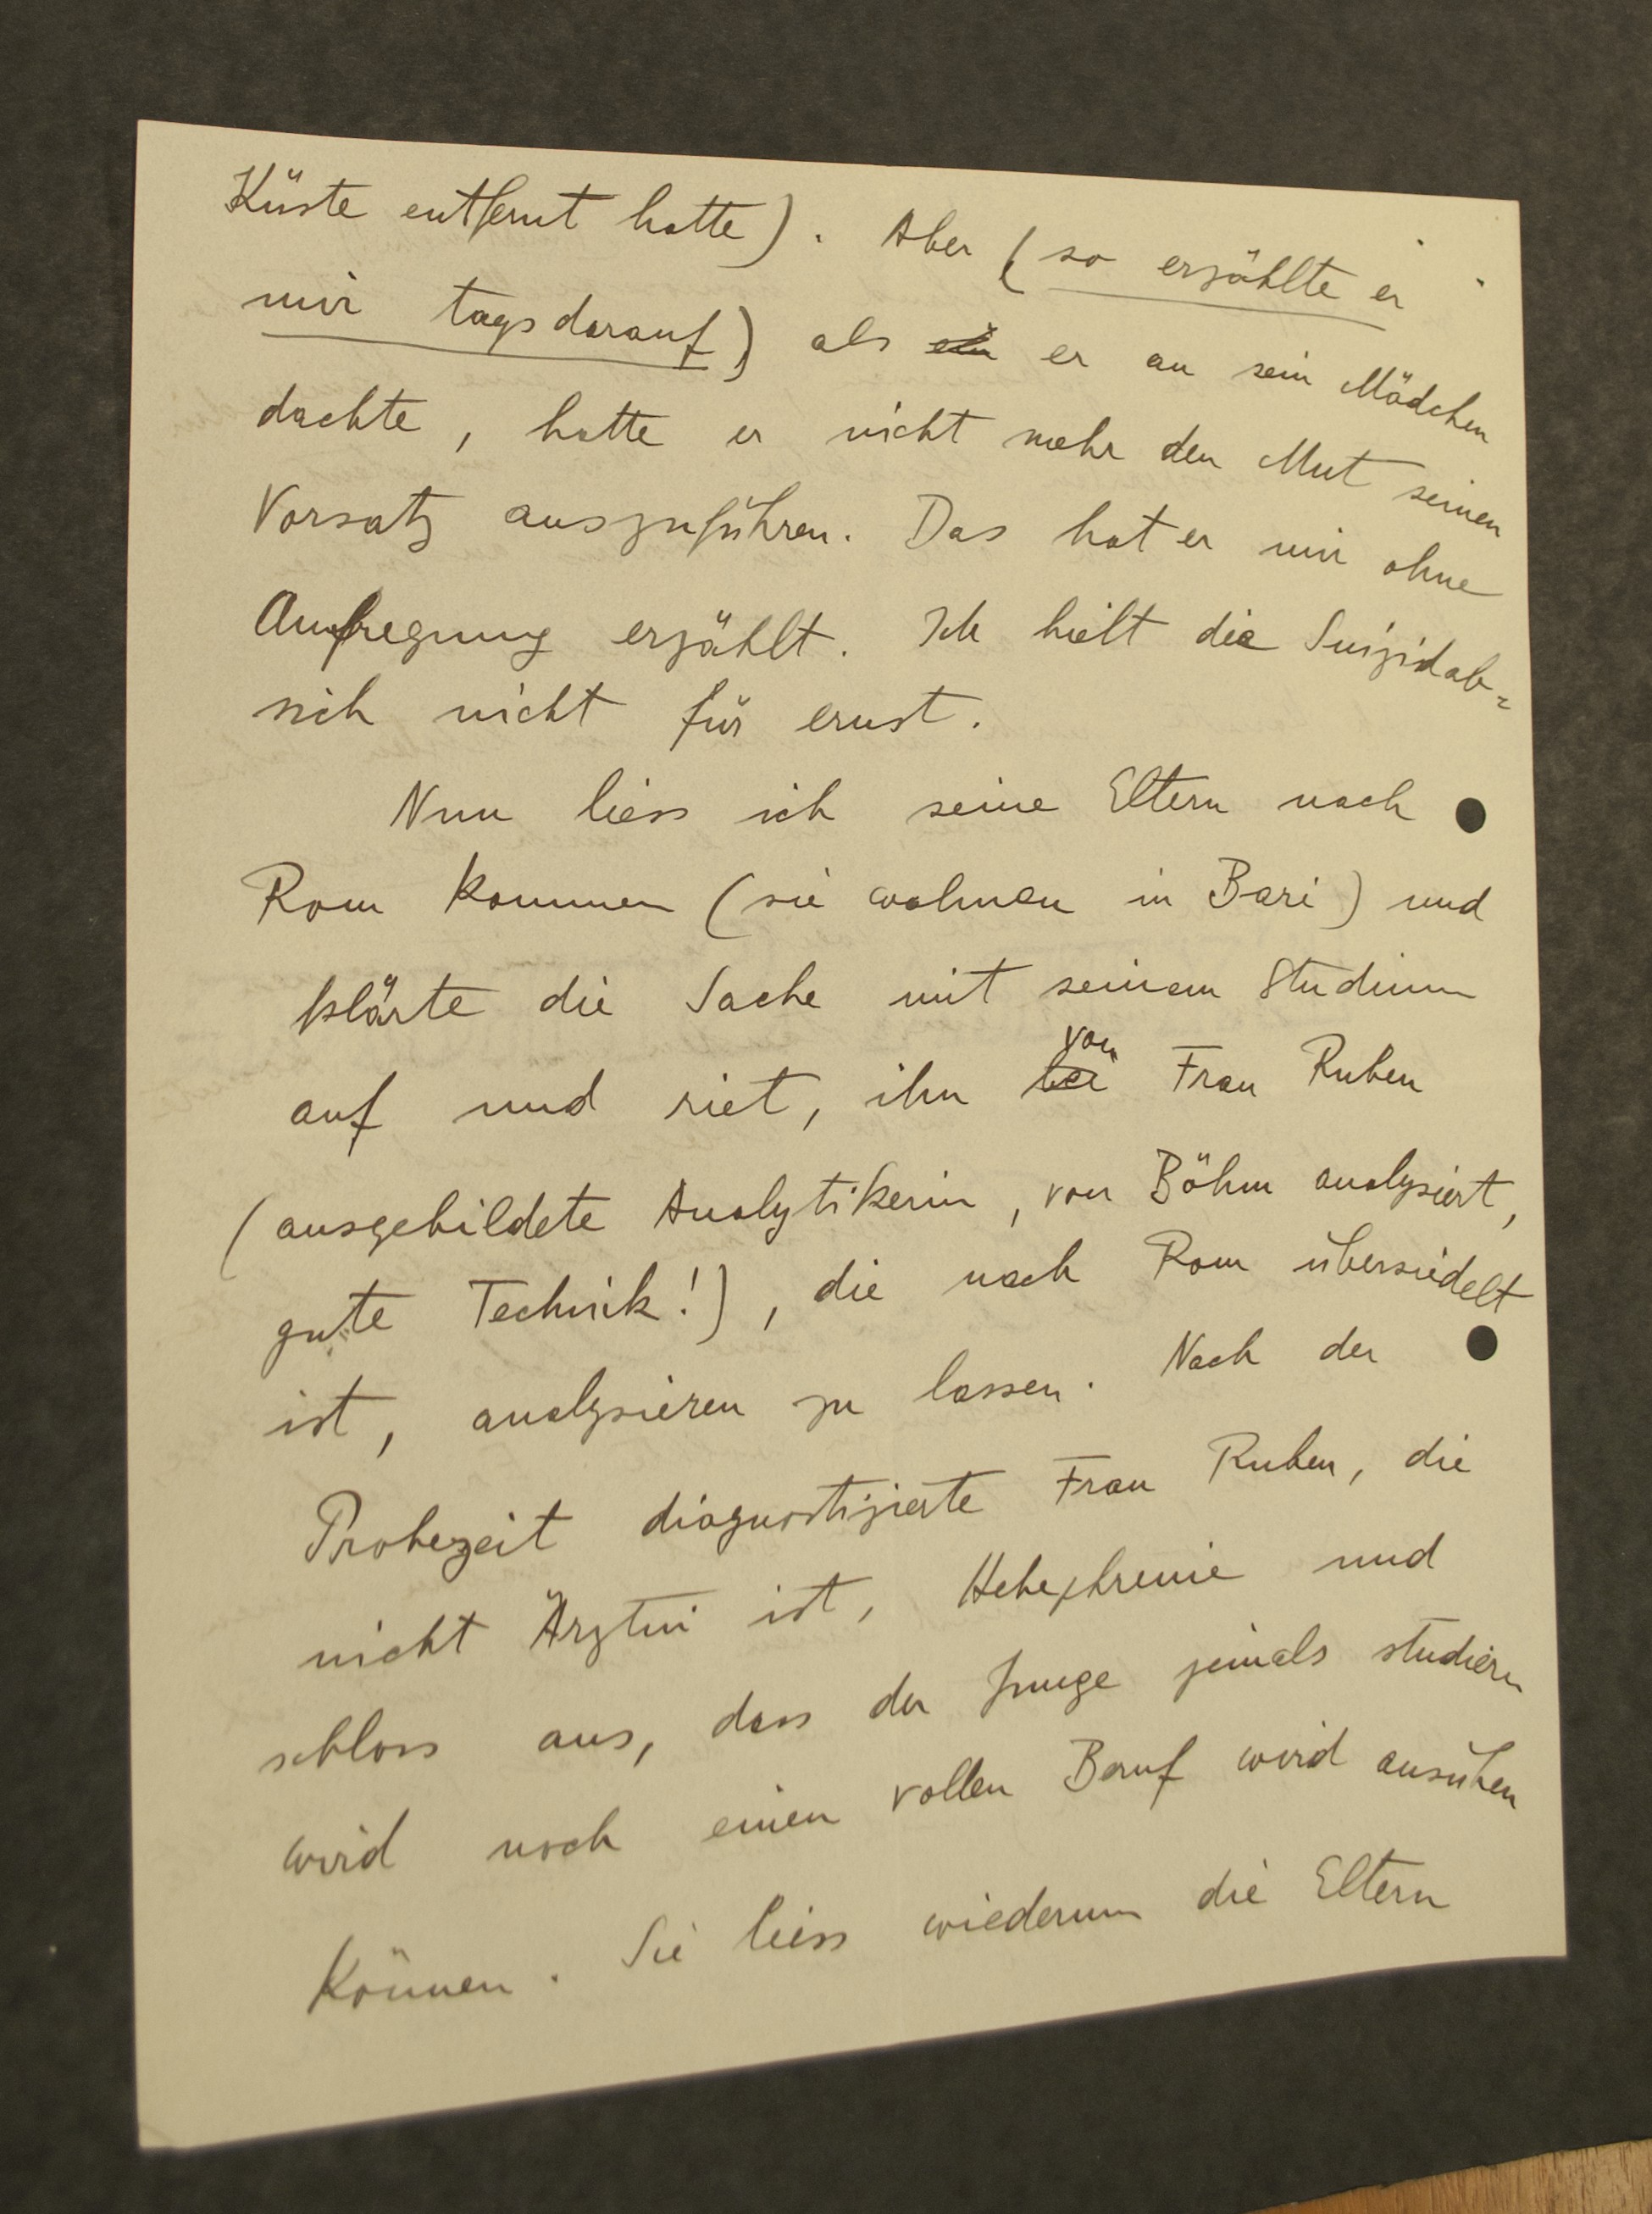 Küste entfernt hatte). Aber (so erzählte er
mir tagsdarauf) als ein er an sein Mädchen
dachte, hatte er nicht mehr den Mut seinen
Vorsatz auszuführen. Das hat er mir ohne
Aufregung erzählt. Ich hielt die Suizidab=
sich nicht für ernst.
Nun liess ich seine Eltern nach
Rom kommen (sie wohnen in Bari) und
klärte die Sache mit seinem Studium
auf und riet, ihn bei von Frau Ruben
(ausgebildete Analytikerin, von Böhm analysiert,
gute Technik!), die nach Rom übersiedelt
ist, analysieren zu lassen. Nach der
Probezeit diagnostizierte Frau Ruben, die
nicht Ärztin ist, Hebephrenie und
schloss aus, dass der Junge jemals studieren
wird noch einen vollen Beruf wird ausüben
können. Sie liess wiederum die Eltern